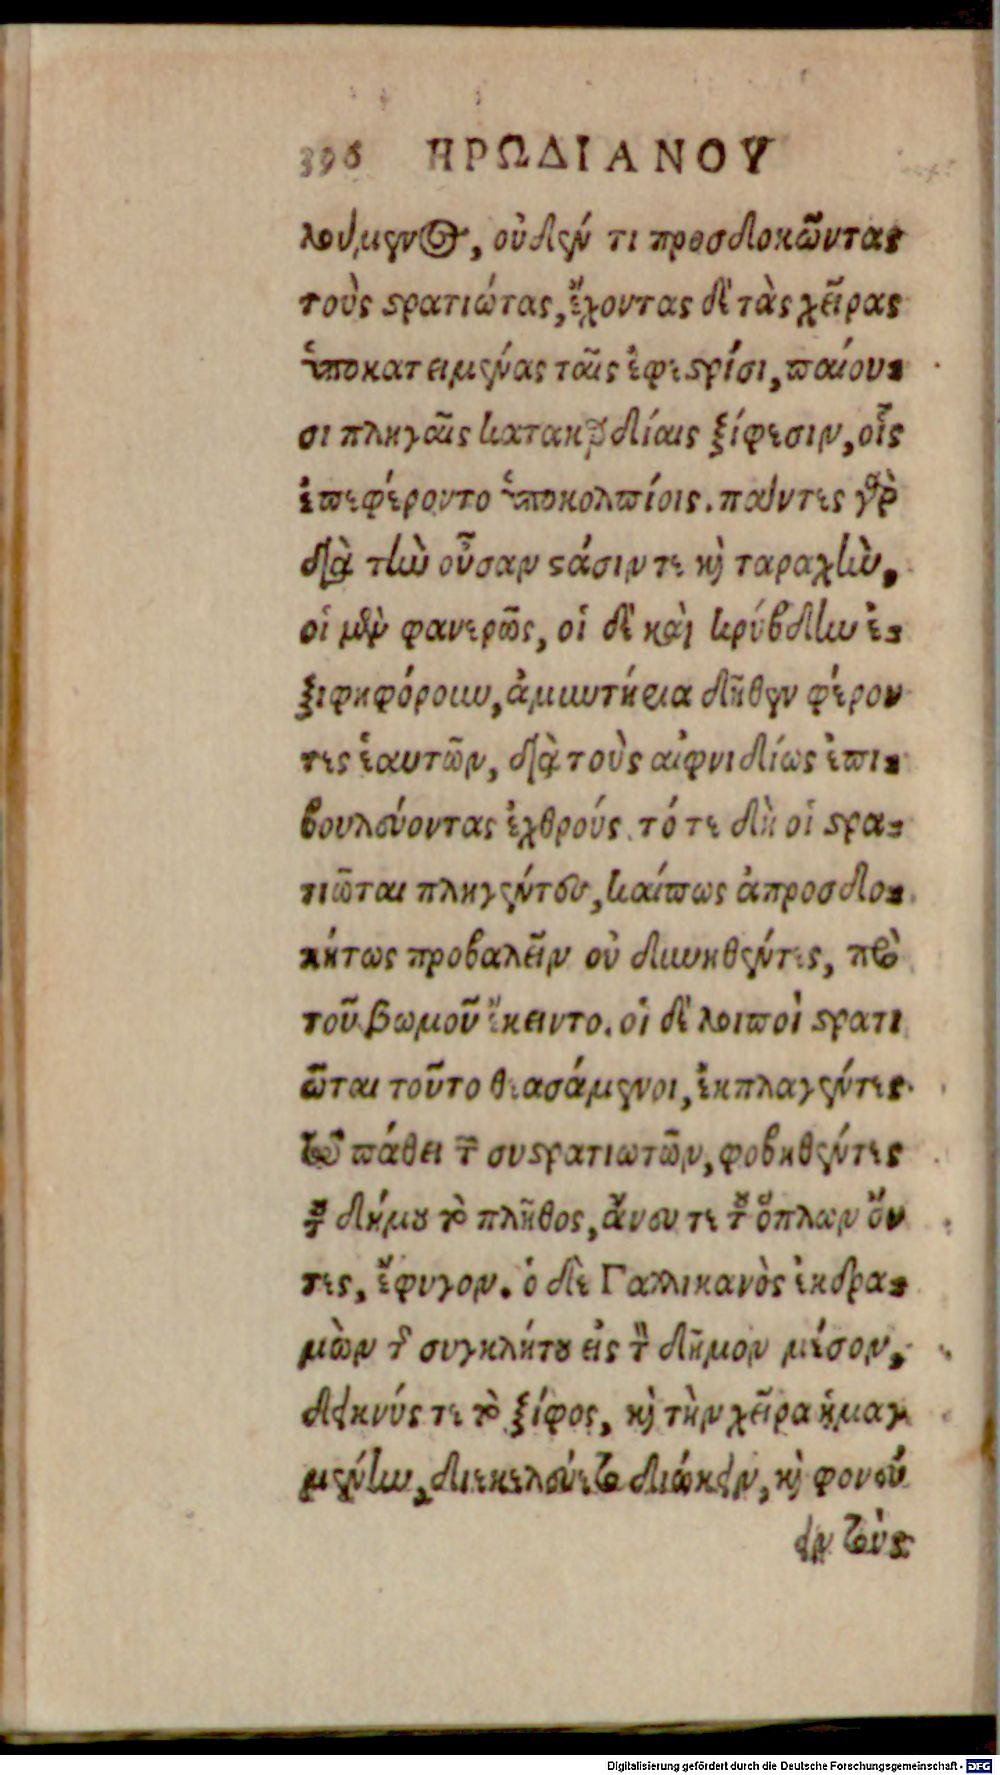 396 ΗΡΩΔΙΑΝΟΥ
λούμενος, οὐδέν τι προσδοκῶντας
τοὺς στρατιώτας, ἔχοντας δὲ τὰς χεῖρας
ὑποκατειμένας ταῖς ἐφεστρίσι, παίου-
σι πληγαῖς κατακαρδίαις ξίφεσιν, οἷς
ἐπεφέροντο ὑποκολπίοις. πάντες γὰρ
διὰ τὴν οὖσαν στάσιν τε καὶ ταραχὴν,
οἱ μὲν φανερῶς, οἱ δὲ καὶ κρύβδην ἐ-
ξιφηφόρουν, ἀμυντήρια δῆθεν φέρον
τες ἑαυτῶν, διὰ τοὺς αἰφνιδίως ἐπι-
βουλεύοντας ἐχθρούς. τότε δὴ οἱ στρα-
τιῶται πληγέντες, καίπως ἀπροσδο-
κήτως προβαλεῖν οὐ δυνηθέντες, πρὸ
τοῦ βωμοῦ ἔκειντο. οἱ δὲ λοιποὶ στρατι
ῶται τοῦτο θεασάμενοι, ἐκπλαγέντες
τῷ πάθει τῶν συστρατιωτῶν, φοβηθέντες
τοῦ δήμου τὸ πλῆθος, ἄνευ τε τῶν ὅπλων ὄν
τες, ἔφυγον. ὁ δὲ Γαλλικανὸς ἐκδρα-
μὼν τῆς συγκλήτου εἰς τὸν δῆμον μέσον,
δεικνύς τε τὸ ξίφος, καὶ τὴν χεῖρα ᾑμαγ
μένην, διεκελεύετο διώκειν, καὶ φονεύ
ειν τοὺς
Digitalisierung gefördert durch die Deutsche Forschungsgemeinschaft - DFG